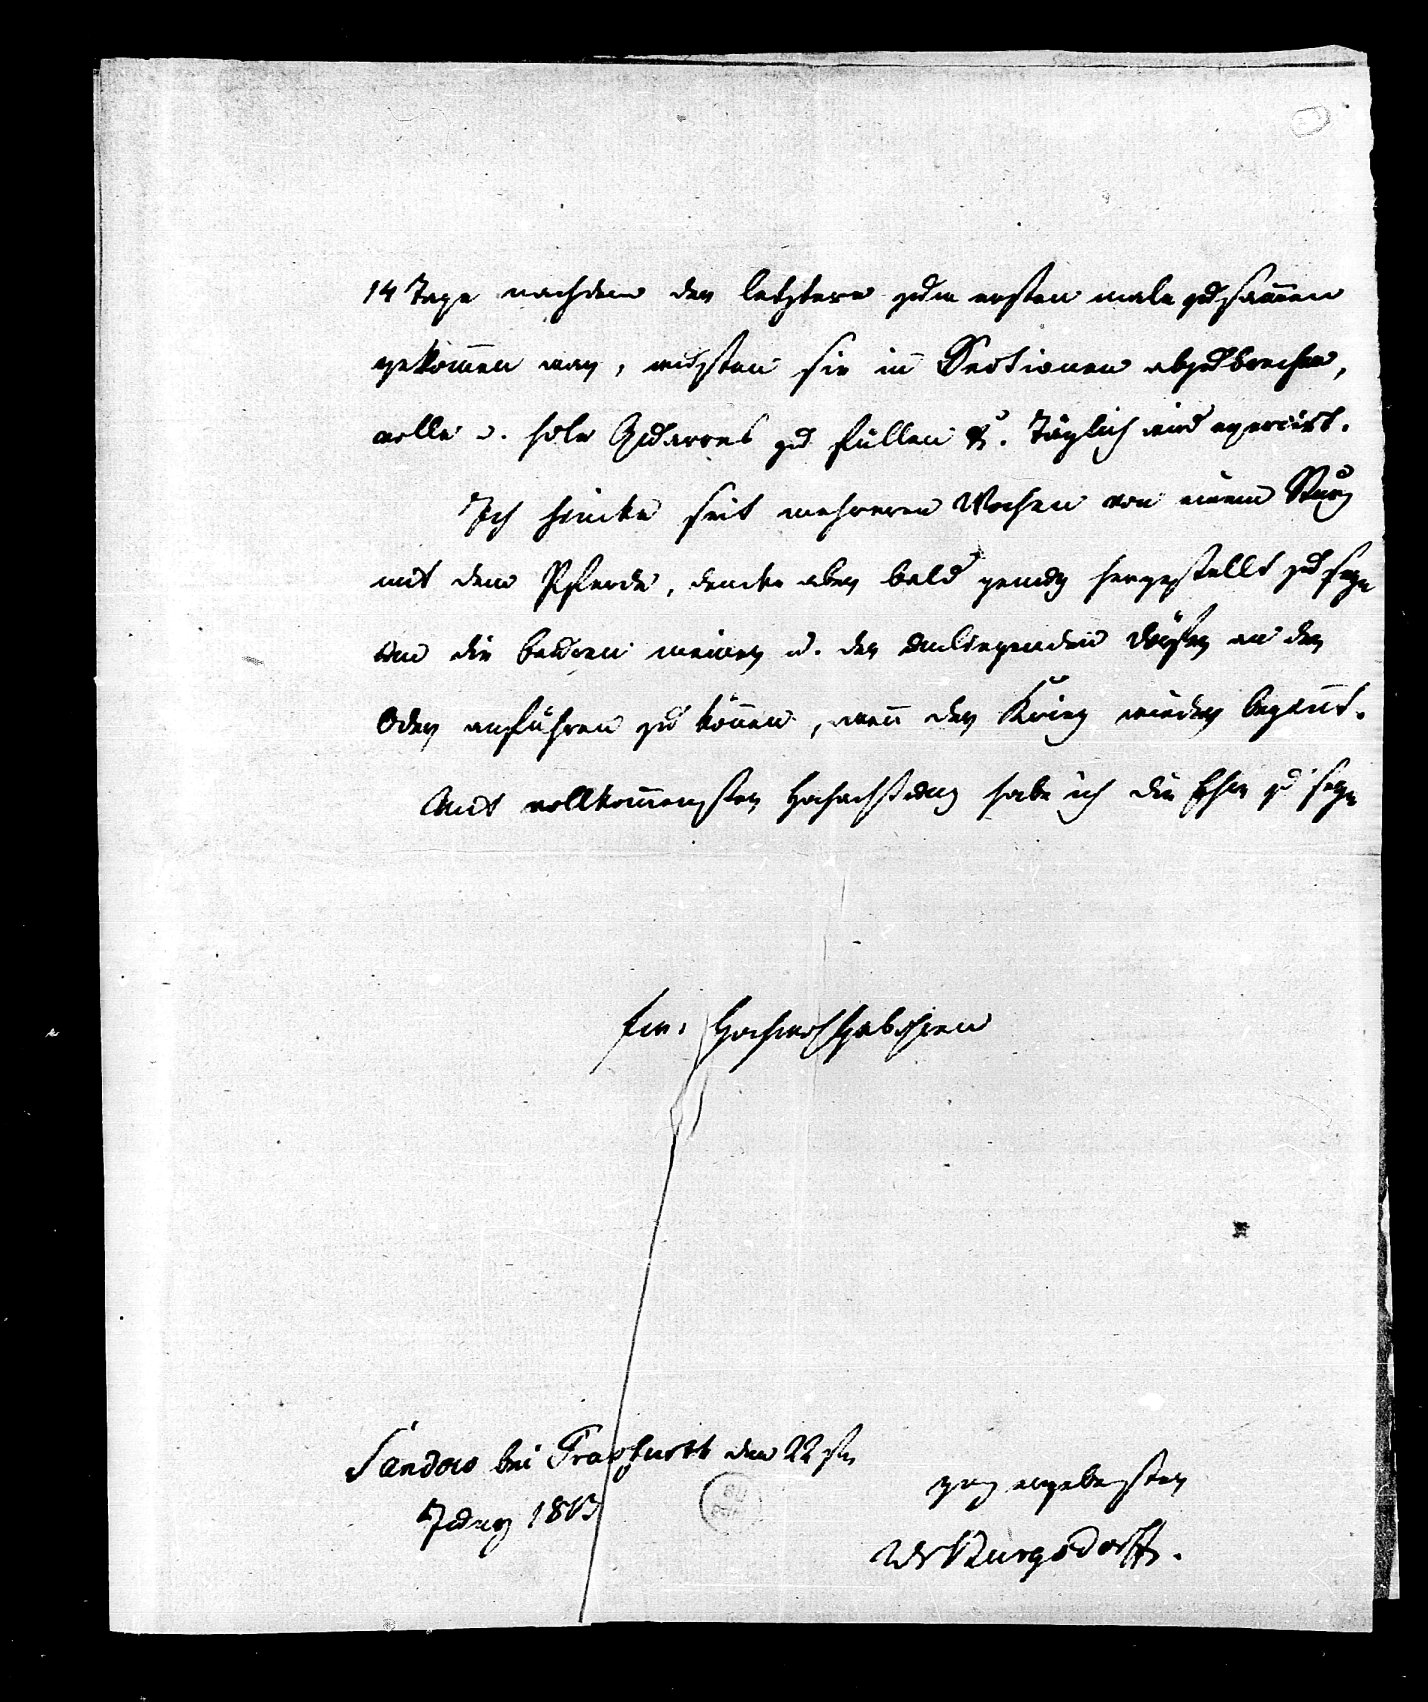 14 Tage nachdem der letztere zum ersten male zusam̄en
gekom̄en war, wußten sie in Sectionen abzubrechen,
volle u. hole Quarrés zu füllen &. Täglich wird exercirt.
Ich hincke seit mehreren Wochen von einem Sturz
mit dem Pferde, dencke aber bald genug hergestellt zu seyn
um die Bauern meiner u. der umliegenden Dörfer an der
Oder anführen zu kön̄en, wen̄ der Krieg wieder begin̄t.
Mit vollkom̄enster Hochachtung habe ich die Ehre zu seyn
Ew. Hochwohlgebohren
Sandow bei Frankfurth den 22sten
Juny 1813
ganz ergebenster
W v Burgsdorff.